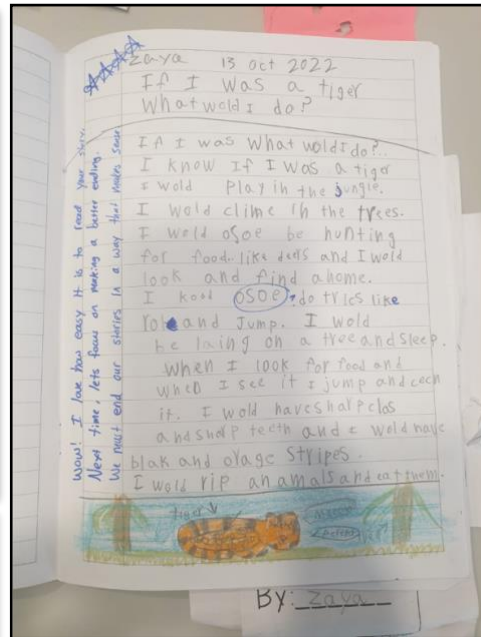 zaya 13 oct 2022
If I was a tiger
What wold I do?
If I was What wold I do?..
I know If I was a tiger
I wold Play in the jungle.
I wold clime in the trees.
I wold osoe be hunting
for food. like deers and I wold
look and find a home.
I kood osoe do tries like
role and Jump. I wold
be laing on a tree and sleep.
when I look for food and
when I see it I jump and cech
it. I wold have sharp clos
and sharp teeth and I wold have
blak and orage stripes.
I wold rip anamals and eat them.
tiger
Wow! I love how easy it is to read your story.
Next time, lets focus on making a better ending.
We must end our stories in a way that makes sense
By: zaya